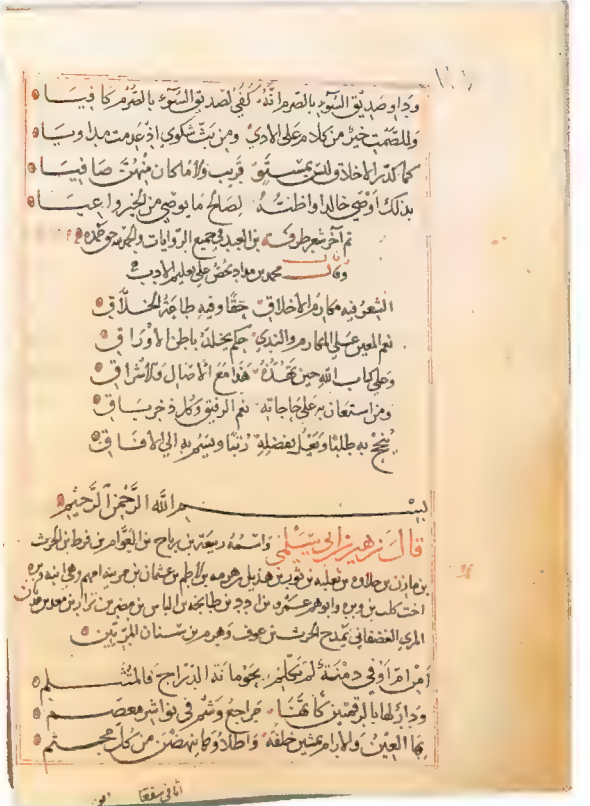 وداو صديق السوء بالصرم انه كفى لصديق السوء بالصرم كافيا
وللصمت خير من كلام على الاذى ومن بث شكوى اذ عدمت مداويا
كما كدر الاخلاق قريب ولا ما كان منهن صافيا
بذلك اوصى خالدا واظنه لصالح ما يوصى من الخير واعيا
تم آخر شعر طرفة بن العبد في جميع الروايات والحمد لله حق حمده
وقال محمد بن يحض على تعليم الادب
الشعر فيه مكارم الاخلاق حقا وفيه طاعة الخلاق
نعم المعين على المكارم والندى حكم يخلد باطن الاوراق
وعلى كتاب الله حين تهذه هذا مع الاصال والاشراق
ومن استعان به على حاجاته نعم الرفيق وكل ذخر باق
ينجح به طلبا ويعل بفضله رتبا ويسم به الى الافاق
بسم الله الرحمن الرحيم
قال زهير بن ابي سلمى واسمه ربيعة بن رباح بن العوام بن قرط بن الحرث
بن مازن بن حلاوه بن ثعلبه بن ثور بن هذيل بن لاطم بن عثمان بن مزينه امهم وهي ابنة وبره
اخت كلب بن وبره وابوهم عمرو بن ادد بن طابخه بن الياس بن مضر بن نزار بن معد بن عدنان
المري الغطفاني يمدح الحرث بن عوف وهرم بن سنان المريين
أمن ام اوفى دمنة لم تكلم بحومانة الدراج فالمتثلم
ودار لها بالرقمتين كانها مراجع وشم في نواشر معصم
بها العين والارام يمشين خلفة واطلاؤها ينهضن من كل مجثم
اثافي سفعا